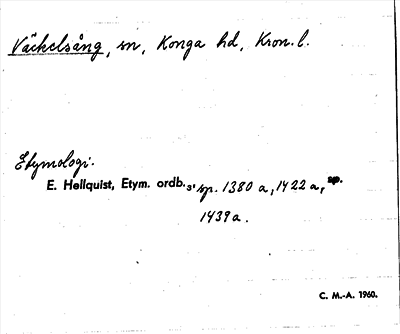 Väckelsång, sn, Konga hd, Kron. l.
Etymologi.
E. Hellquist, Etym. ordb.3, sp. 1380 a, 1422 a, sp.
1439 a.
C. M.-A. 1960.